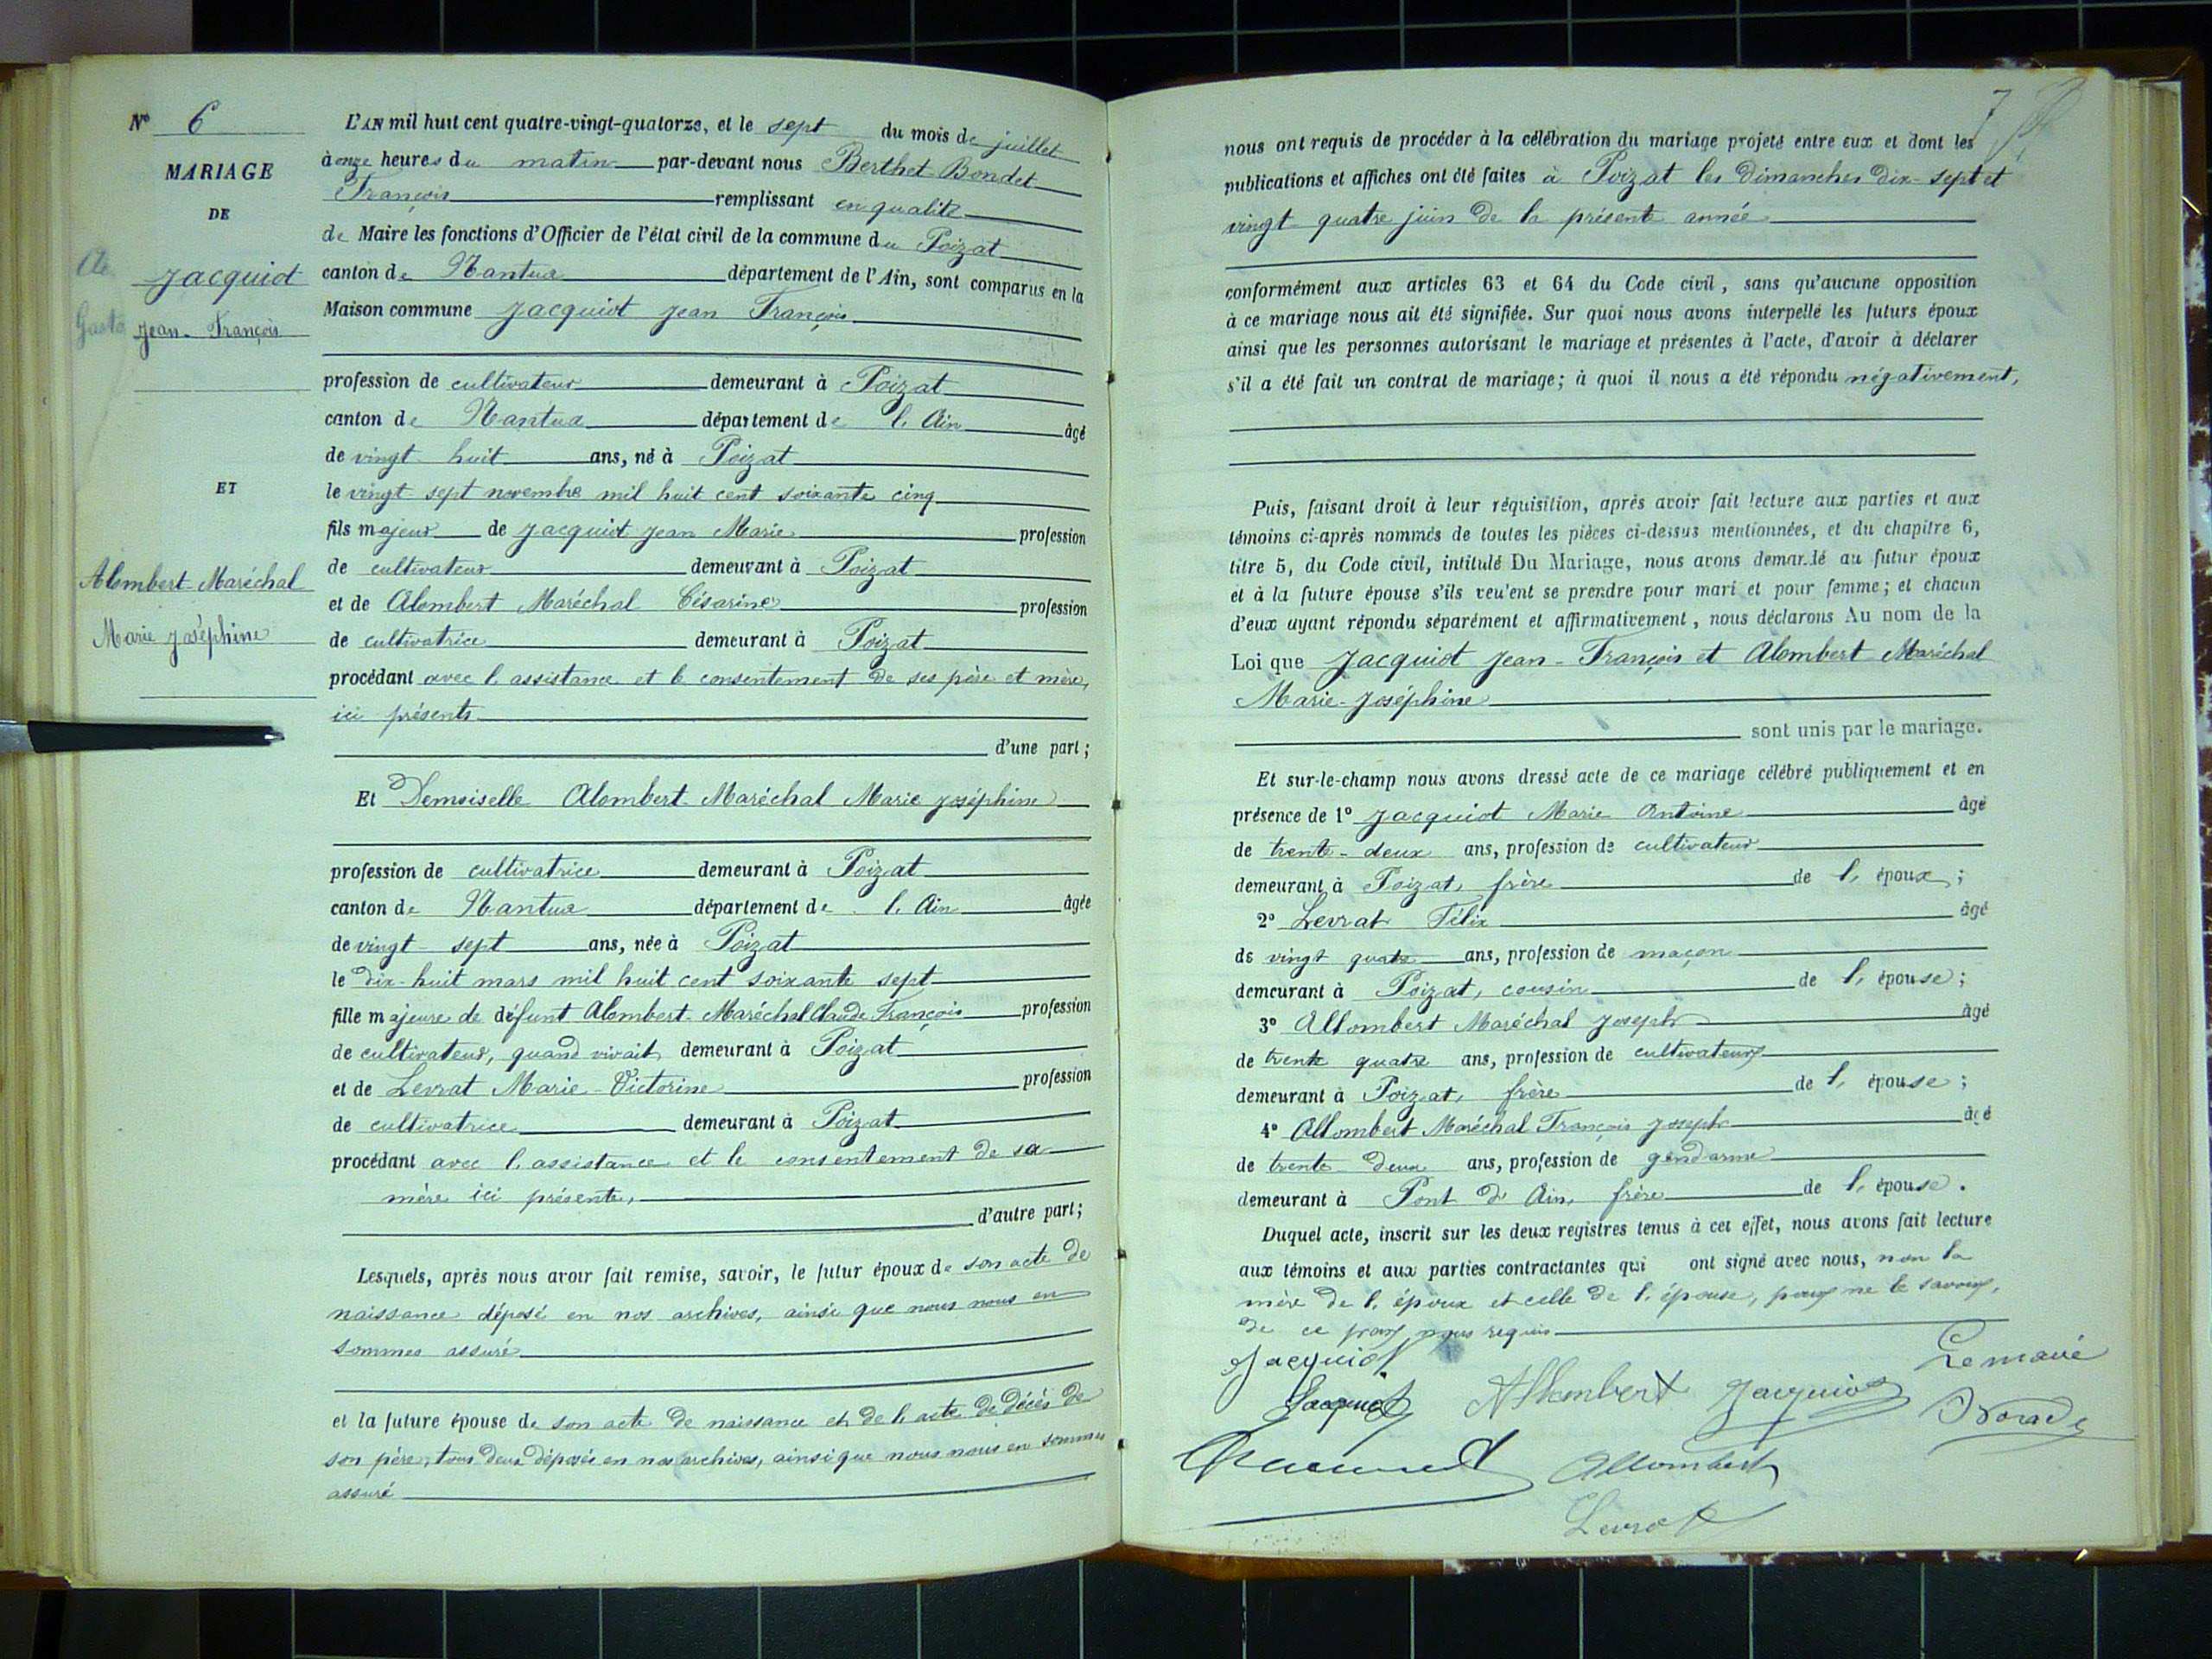 N° 6
MARIAGE
DE
Jacquiot
Jean-François
ET
Alombert-Maréchal
Marie Joséphine
L'AN mil huit cent quatre-vingt-quatorze, et le sept du mois de juillet
à onze heures du matin par-devant nous Berthet-Bondet
François remplissant en qualité
de Maire les fonctions d'Officier de l'état civil de la commune du Poizat
canton de Nantua département de l'Ain, sont comparus en la
Maison commune Jacquiot Jean François
profession de cultivateur demeurant à Poizat
canton de Nantua département de l'Ain âgé
de vingt-huit ans, né à Poizat
le vingt-sept novembre mil huit cent soixante cinq
fils majeur de Jacquiot Jean Marie profession
de cultivateur demeurant à Poizat
et de Alombert Maréchal Césarine profession
de cultivatrice demeurant à Poizat
procédant avec l'assistance et le consentement de ses père et mère,
ici présents
d'une part ;
Et Demoiselle Alombert-Maréchal Marie Joséphine
profession de cultivatrice demeurant à Poizat
canton de Nantua département de l'Ain âgée
de vingt-sept ans, née à Poizat
le dix-huit mars mil huit cent soixante sept
fille majeure de défunt Alombert-Maréchal Claude François profession
de cultivateur, quand vivait, demeurant à Poizat
et de Levrat Marie-Victorine profession
de cultivatrice demeurant à Poizat
procédant avec l'assistance et le consentement de sa
mère ici présente,
d'autre part ;
Lesquels, après nous avoir fait remise, savoir, le futur époux de son acte de
naissance déposé en nos archives, ainsi que nous nous en
sommes assuré
et la future épouse de son acte de naissance et de l'acte de décès de
son père, tous deux déposés en nos archives, ainsi que nous nous en sommes
assuré
7
nous ont requis de procéder à la célébration du mariage projeté entre eux et dont les
publications et affiches ont été faites à Poizat les dimanches dix-sept et
vingt-quatre juin de la présente année
conformément aux articles 63 et 64 du Code civil, sans qu'aucune opposition
à ce mariage nous ait été signifiée. Sur quoi nous avons interpellé les futurs époux
ainsi que les personnes autorisant le mariage et présentes à l'acte, d'avoir à déclarer
s'il a été fait un contrat de mariage ; à quoi il nous a été répondu négativement,
Puis, faisant droit à leur réquisition, après avoir fait lecture aux parties et aux
témoins ci-après nommés de toutes les pièces ci-dessus mentionnées, et du chapitre 6,
titre 5, du Code civil, intitulé Du Mariage, nous avons demandé au futur époux
et à la future épouse s'ils veulent se prendre pour mari et pour femme ; et chacun
d'eux ayant répondu séparément et affirmativement, nous déclarons Au nom de la
Loi que Jacquiot Jean-François et Alombert-Maréchal
Marie-Joséphine
sont unis par le mariage.
Et sur-le-champ nous avons dressé acte de ce mariage célébré publiquement et en
présence de 1° Jacquiot Marie Antoine âgé
de trente-deux ans, profession de cultivateur
demeurant à Poizat, frère de l'époux ;
2° Levrat Félix âgé
de vingt quatre ans, profession de maçon
demeurant à Poizat, cousin de l'épouse ;
3° Allombert Maréchal Joseph âgé
de trente quatre ans, profession de cultivateur
demeurant à Poizat, frère de l'épouse ;
4° Allombert Maréchal François Joseph âgé
de trente deux ans, profession de gendarme
demeurant à Pont d'Ain, frère de l'épouse.
Duquel acte, inscrit sur les deux registres tenus à cet effet, nous avons fait lecture
aux témoins et aux parties contractantes qui ont signé avec nous, non la
mère de l'époux et celle de l'épouse, pour ne le savoir,
de ce par nous requis
Jacquiot Le maire
Jacquiot Allombert Jacquiot
Allombert
Levrat